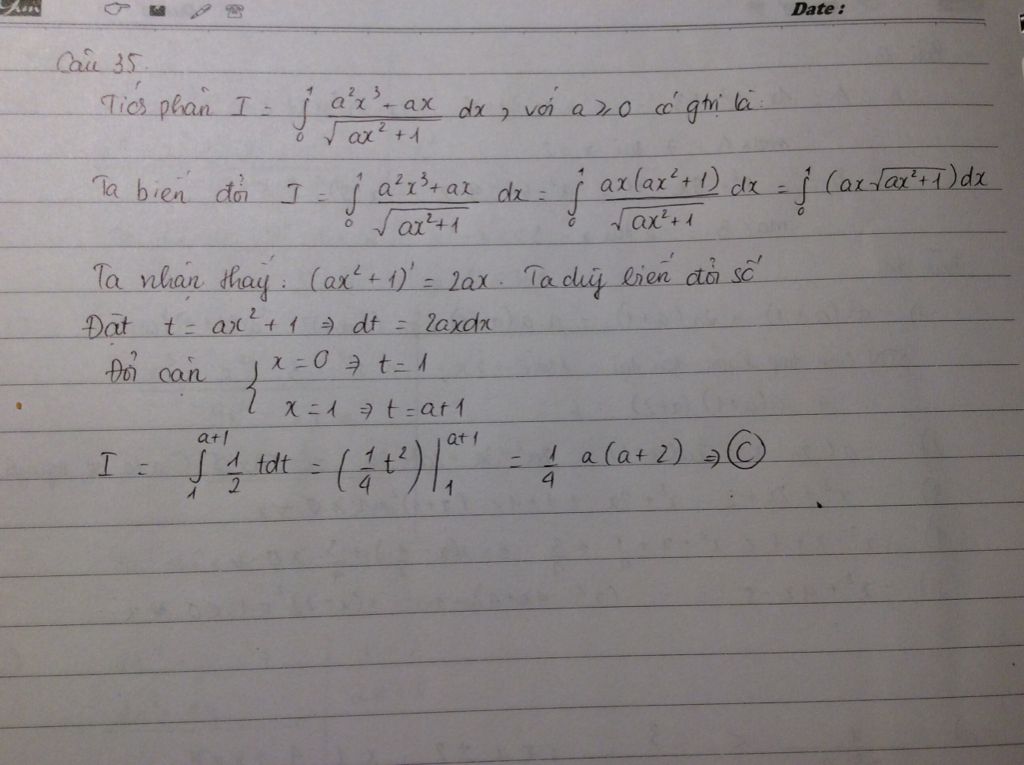 Date :
Câu 35.
Tích phân I = ∫₀¹ (a²x³ + ax)/√(ax² + 1) dx, với a ≥ 0 có gtrị là:
Ta biến đổi I = ∫₀¹ (a²x³ + ax)/√(ax² + 1) dx = ∫₀¹ ax(ax² + 1)/√(ax² + 1) dx = ∫₀¹ (ax√(ax² + 1))dx
Ta nhận thấy: (ax² + 1)' = 2ax. Ta biến đổi số
Đặt t = ax² + 1 ⇒ dt = 2axdx
Đổi cận { x = 0 ⇒ t = 1
x = 1 ⇒ t = a+1
I = ∫₁ᵃ⁺¹ 1/2 tdt = (1/4 t²)|₁ᵃ⁺¹ = 1/4 a(a+2) ⇒ C